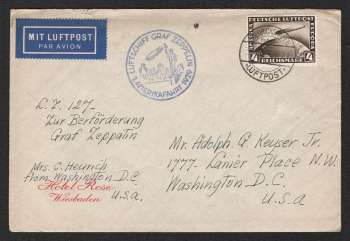 MIT LUFTPOST
PAR AVION
LUFTSCHIFF GRAF ZEPPELIN
1. AMERIKAFAHRT 1929
DEUTSCHE LUFTPOST
4
4
REICHSMARK
LUFTPOST
L.Z. 127
Zur Beförderung
Graf Zeppelin
Mrs. C. Heurich
from Washington D.C.
U.S.A.
Hotel Rose
Wiesbaden
Mr. Adolph G. Keyser Jr.
1777 Lanier Place N.W.
Washington D.C.
U.S.A